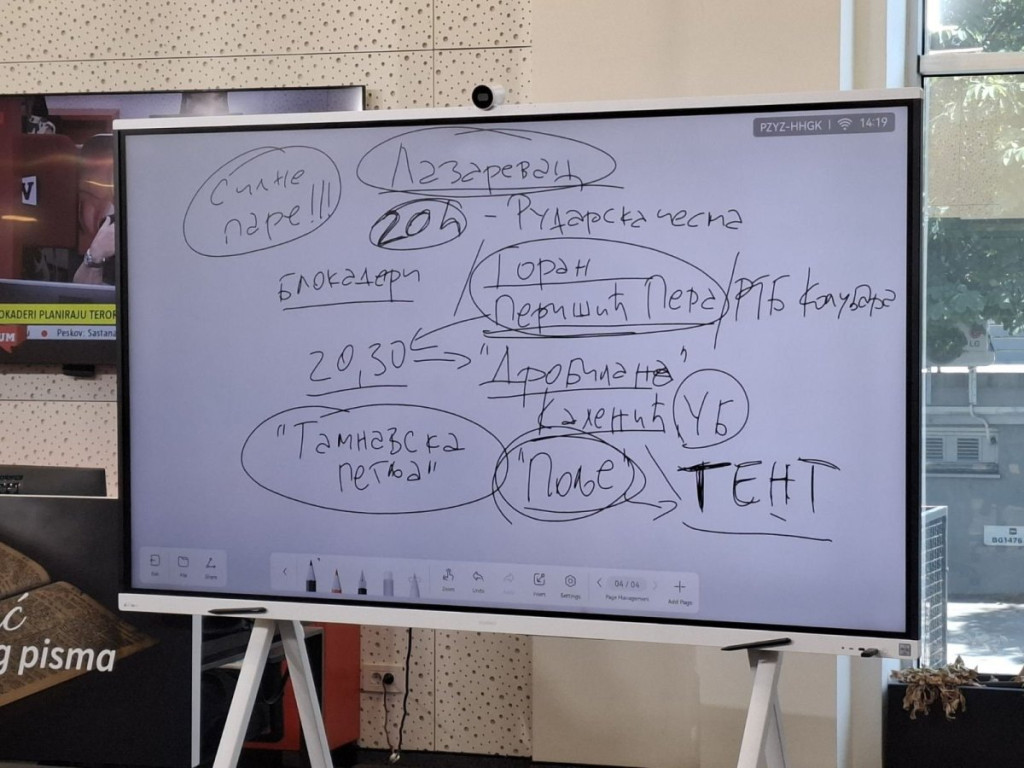 PZYZ-HHGK 14:19
Силне
паре!!!
Лазаревац
20h - Рударска чесма
Блокадери
Горан
Перишић Пера
РБ Колубара
20,30
"Дробилана"
Каленић
УБ
"Тамнавска
петља"
"Поље"
ТЕНТ
OKADERI PLANIRAJU TEROR
UM
Peskov: Sastana
ć
g pisma
Exit
File
Share
Zoom
Undo
Insert
Settings
04 / 04
Page Management
Add Page
BG1476